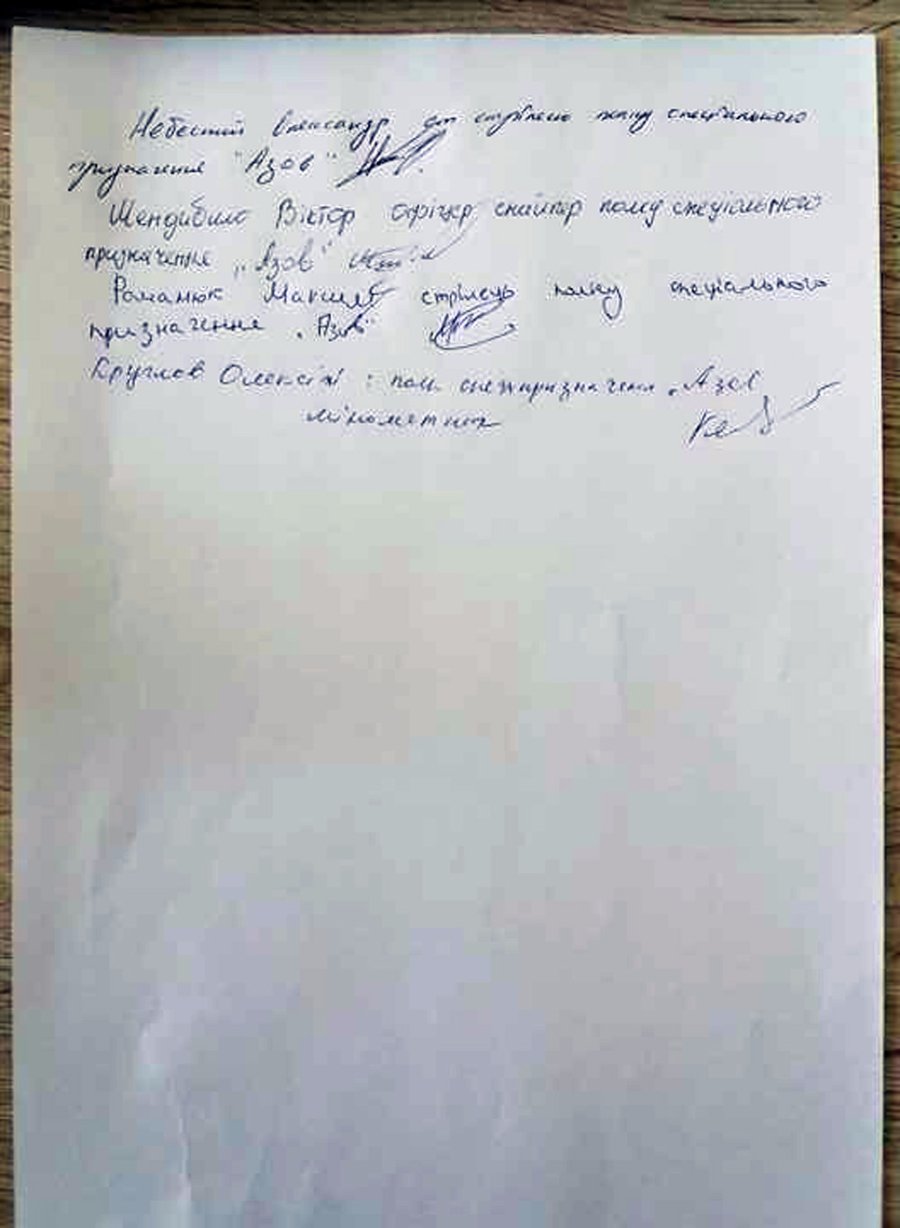 Небесний Олександр ст стрілець полку спеціального
призначення "Азов"
Віктор офіцер снайпер полку спеціального
призначення „Азов"
Романюк Максим стрілець полку спеціального
призначення „Азов"
Круглов Олексій: полк спецпризначення „Азов
мінометник